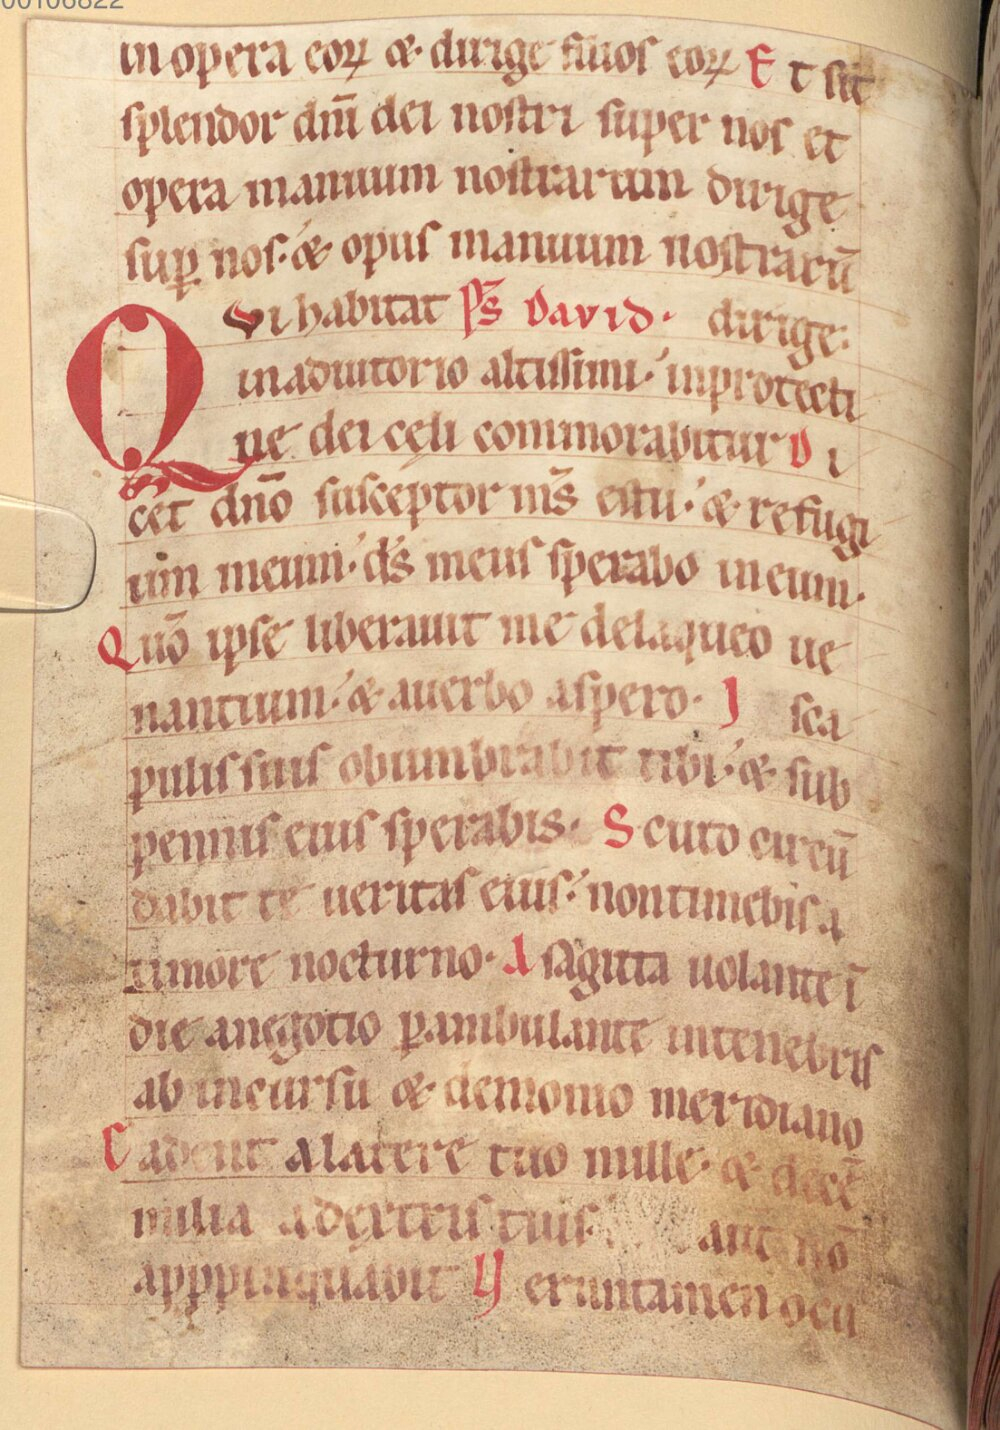 00106822
in opera eoꝝ & dirige filios eoꝝ E t sit
splendor dn̄i dei nostri super nos et
opera manuum nostrarum dirige
suꝑ nos. & opus manuum nostrarū
Qvi habitat ps̄ David. dirige.
in adiutorio altissimi. inprotecti
ne dei cęli commorabitur D i
cet dn̄o susceptor ms̄ estu. & refugi
um meum. ds̄ meus sperabo ineum.
Quō ipse liberauit me delaqueo ue
nantium. & auerbo aspero. I sca
pulis suis obumbrabit tibi. & sub
pennis eius sperabis. S cuto circū
dabit te ueritas eius. nontimebis a
timore nocturno. A sagitta uolante ī
die anegotio ꝑambulante intenebris
ab incursu & demonio meridiano
Cadent alatere tuo mille. & decē
milia adextris tuis aut nō
appinquabit V eruntamen ocu